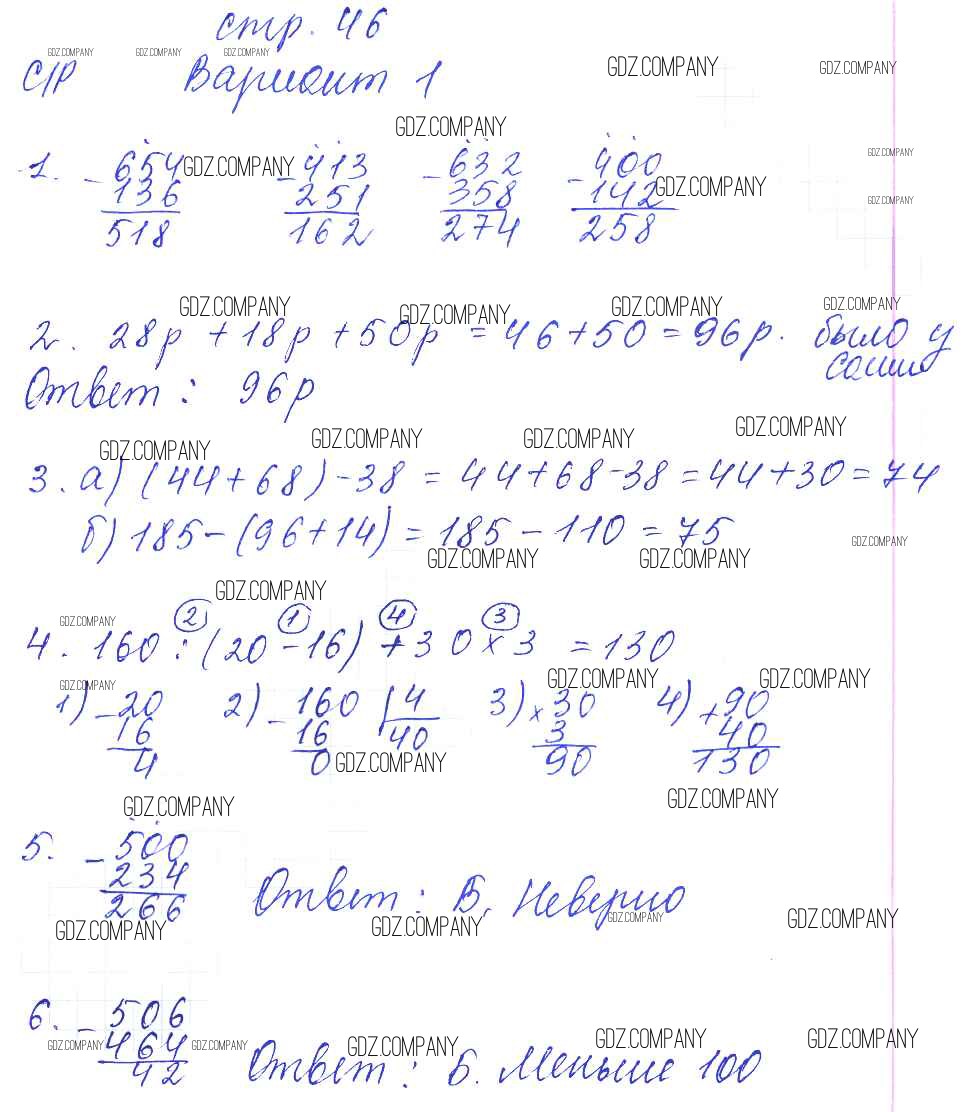 стр. 46
GDZ.COMPANY GDZ.COMPANY GDZ.COMPANY
С/Р Вариант 1 GDZ.COMPANY GDZ.COMPANY
GDZ.COMPANY
1. - 654 GDZ.COMPANY - 413 - 632 - 400 GDZ.COMPANY
136 251 358 142 GDZ.COMPANY GDZ.COMPANY
518 162 274 258
GDZ.COMPANY GDZ.COMPANY GDZ.COMPANY GDZ.COMPANY
2. 28р + 18р + 50р = 46 + 50 = 96р. было у
Саши
Ответ: 96р
GDZ.COMPANY GDZ.COMPANY GDZ.COMPANY GDZ.COMPANY
3. а) (44 + 68) - 38 = 44 + 68 - 38 = 44 + 30 = 74
б) 185 - (96 + 14) = 185 - 110 = 75
GDZ.COMPANY GDZ.COMPANY GDZ.COMPANY
GDZ.COMPANY
GDZ.COMPANY 2 1 4 3
4. 160 : (20 - 16) + 30 x 3 = 130
GDZ.COMPANY GDZ.COMPANY GDZ.COMPANY
1) - 20 2) - 160 | 4 3) x 30 4) + 90
16 16 40 3 40
4 0 GDZ.COMPANY 90 130
GDZ.COMPANY GDZ.COMPANY
5. - 500
234
266 Ответ: Б. Неверно
GDZ.COMPANY GDZ.COMPANY GDZ.COMPANY GDZ.COMPANY
6. - 506
GDZ.COMPANY 464 GDZ.COMPANY GDZ.COMPANY GDZ.COMPANY GDZ.COMPANY
42 Ответ: Б. Меньше 100